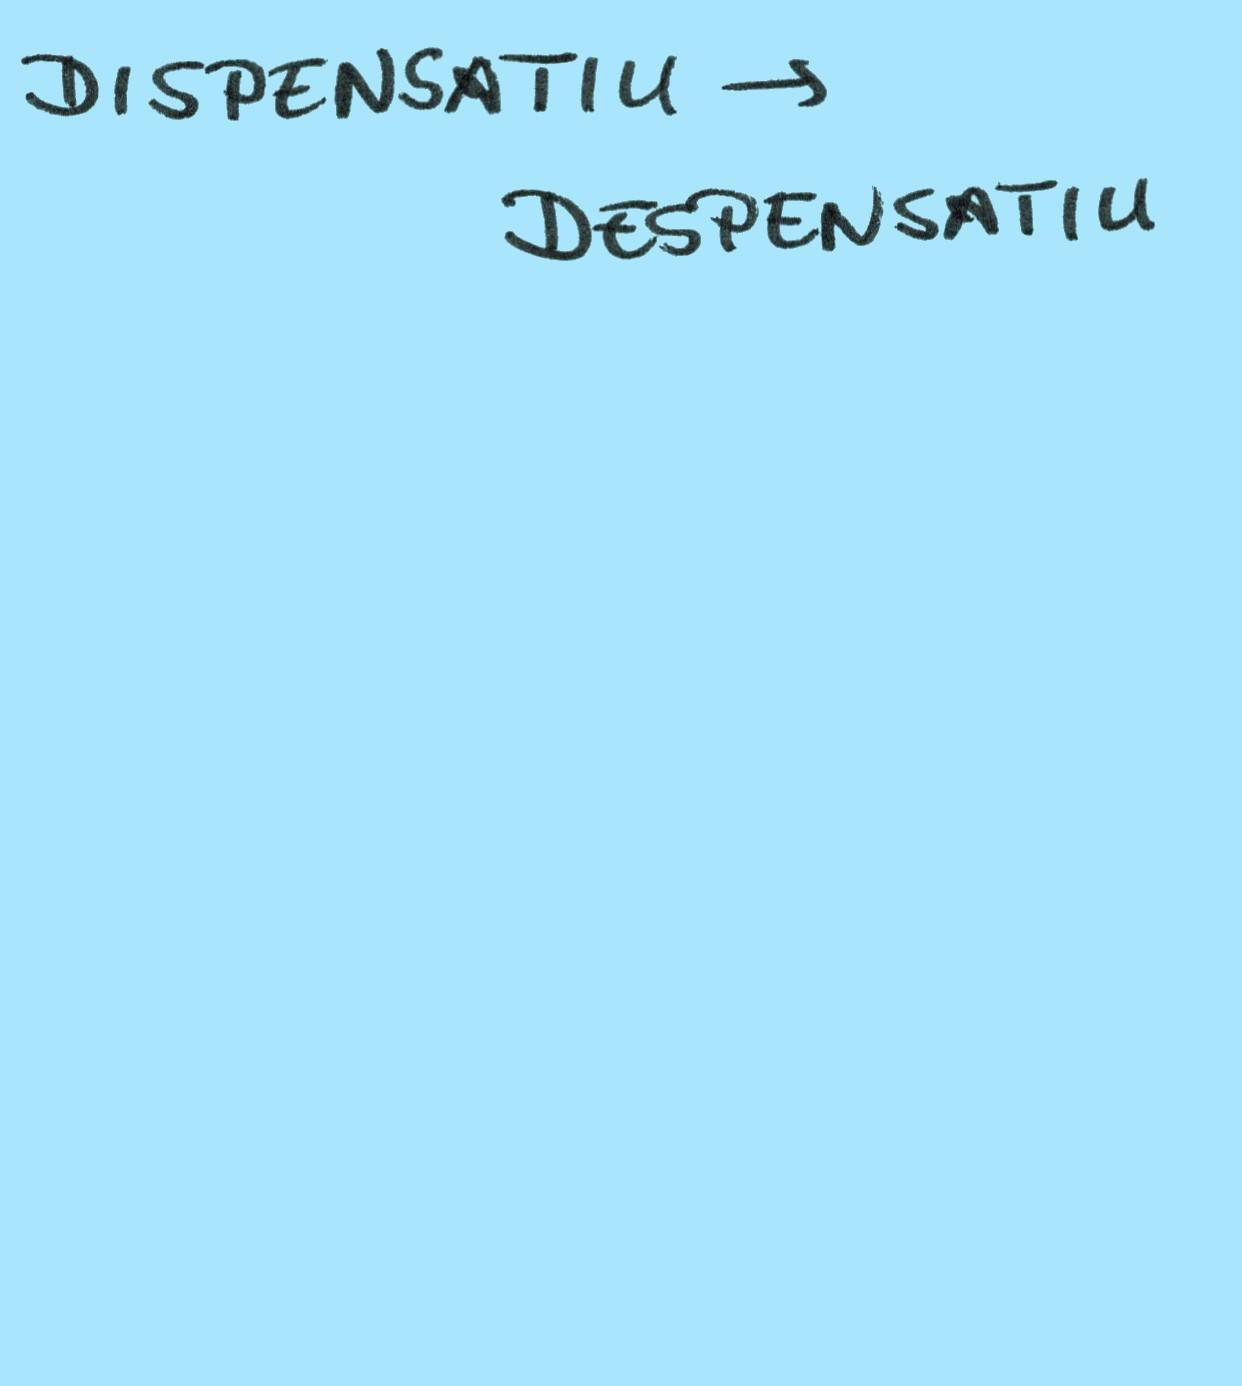 DISPENSATIU →
DESPENSATIU